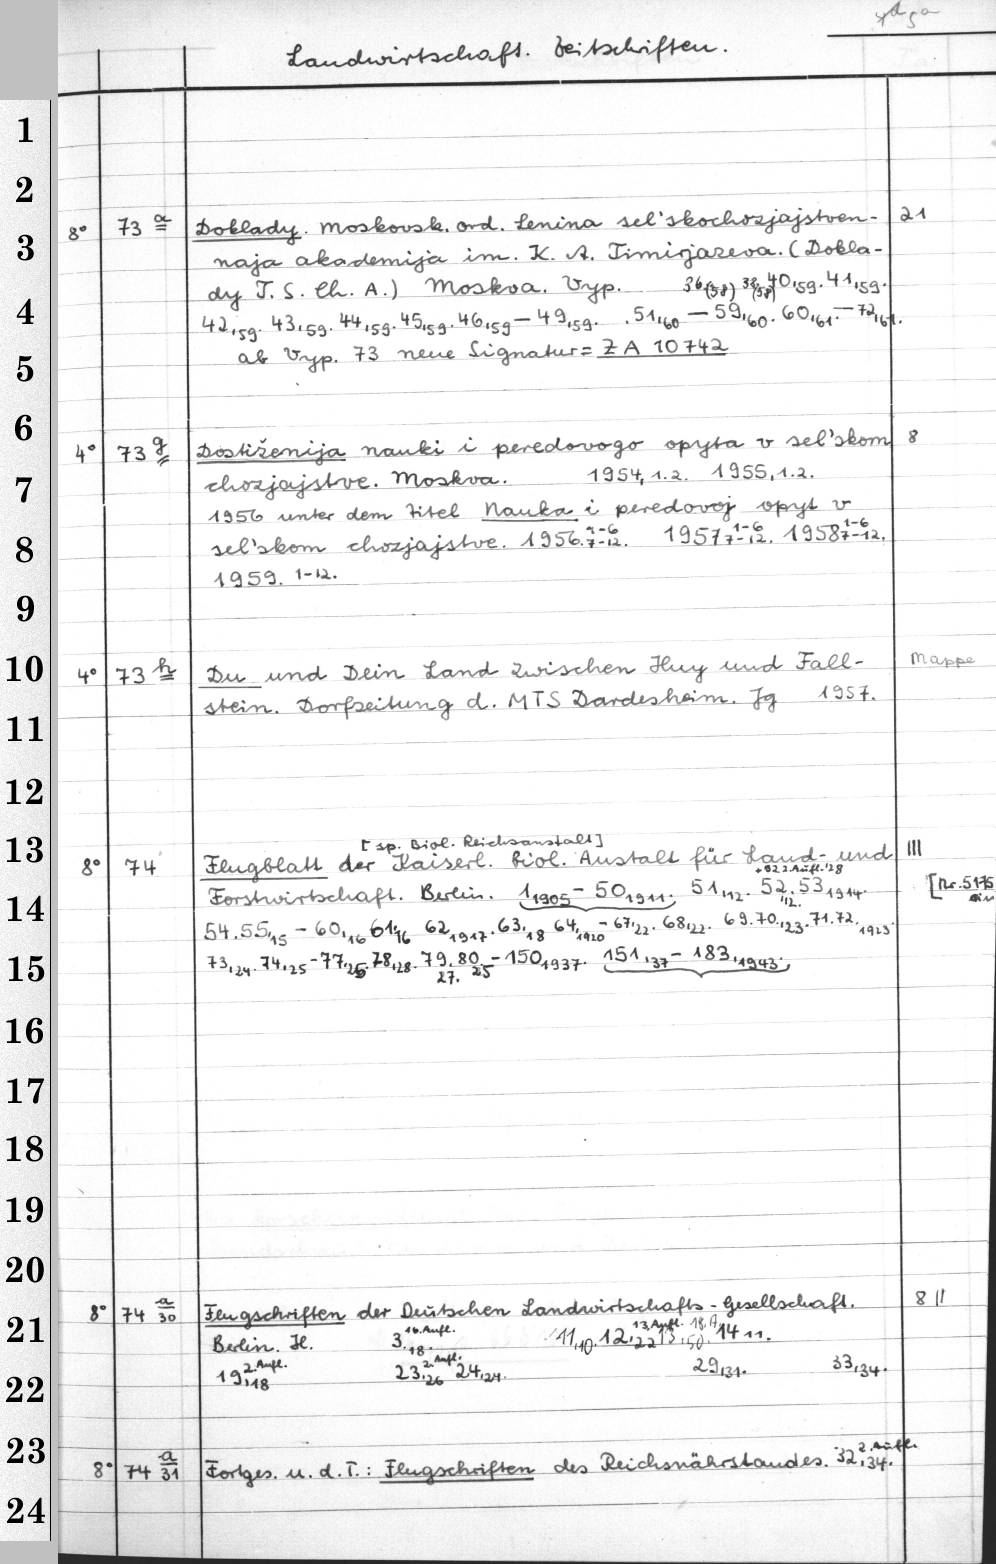 Landwirtschaft. Zeitschriften.
1
2
8° 73 a Doklady. Moskovsk. ord. Lenina sel'skochozjajstven- 21
3
naja akademija im. K. A. Timirjazeva. (Dokla-
dy T. S. Ch. A.) Moskva. Vyp. 36,(58) 38,(58) 40,59. 41,59.
4
42,59. 43,59. 44,59. 45,59. 46,59 – 49,59. 51,60 – 59,60. 60,61. – 72,61.
ab Vyp. 73 neue Signatur = ZA 10742
5
6
4° 73 g Dostiženija nauki i peredovogo opyta v sel'skom 8
7
chozjajstve. Moskva. 1954, 1.2. 1955, 1.2.
1956 unter dem Titel Nauka i peredovoj opyt v
8
sel'skom chozjajstve. 1956. 7-12. 1957 1-6 7-12. 1958 1-6 7-12.
1959. 1-12.
9
10
4° 73 h Du und Dein Land zwischen Huy und Fall- Mappe
stein. Dorfzeitung d. MTS Dardesheim. Jg 1957.
11
12
13
[sp. Biol. Reichsanstalt]
8° 74 Flugblatt der Kaiserl. Biol. Anstalt für Land- und III
+ 52 2. Aufl. '28
14
Forstwirtschaft. Berlin. 1,1905 – 50,1911. 51,12. 52,12. 53,1914. [Nr. 5175
54. 55,15 – 60,16 61,16 62,1917. 63,18 64,1920 – 67,22. 68,22. 69. 70,23. 71. 72,1923.
15
73,24. 74,25 – 77,26. 78,28. 79,27. 80,25 – 150,1937. 151,37 – 183,1943.
16
17
18
19
20
8° 74 a/30 Flugschriften der Deutschen Landwirtschafts-Gesellschaft. 8 II
21
Berlin. H. 3,18. 16. Aufl. 11,10. 12,22 13. Aufl. 13,50. 18. A. 14,11.
22
19,18 2. Aufl. 23,26 2. Aufl. 24,24. 29,31. 33,34.
23
8° 74 a/31 Fortges. u. d. T.: Flugschriften des Reichsnährstandes. 32,34. 2. Aufl.
24